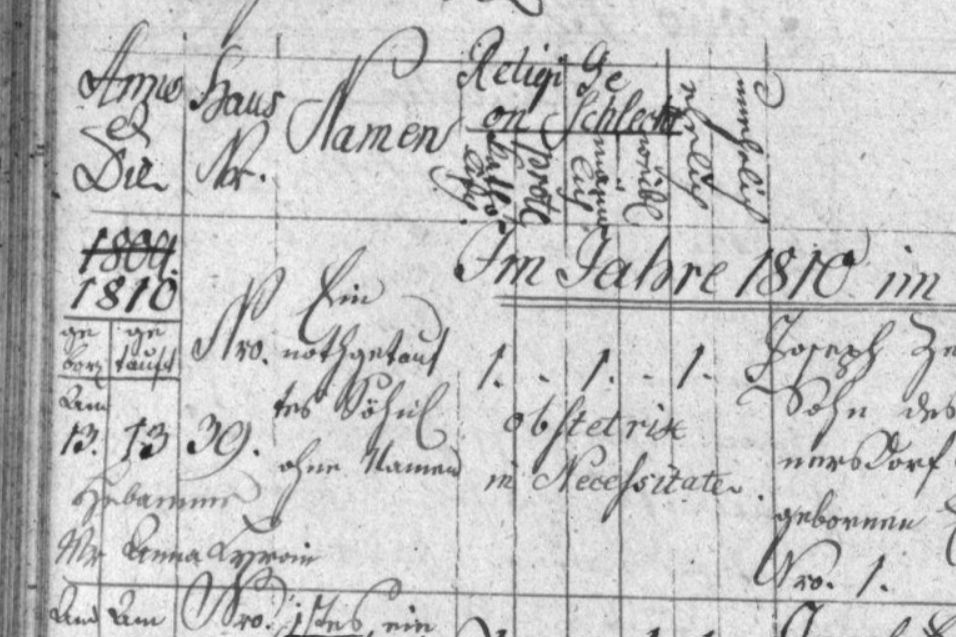 Anno et Die
Haus Nr.
Namen
Religion
katholisch
protest.
Geschlecht
männlich
weibl.
ehelich
unehelich
1809.
1810
Im Jahre 1810 im
geborn
getauft
Am
13. 13
Nro. 39.
Ein
nothgetauf
tes Söhnl
ohne Namen
1. - 1. - 1.
obstetrix
in Necessitate.
Joseph
Sohn des
nersdorf
gebornen
Nro. 1.
Hebamme
Anna
Am Am Nro. 1stes, ein